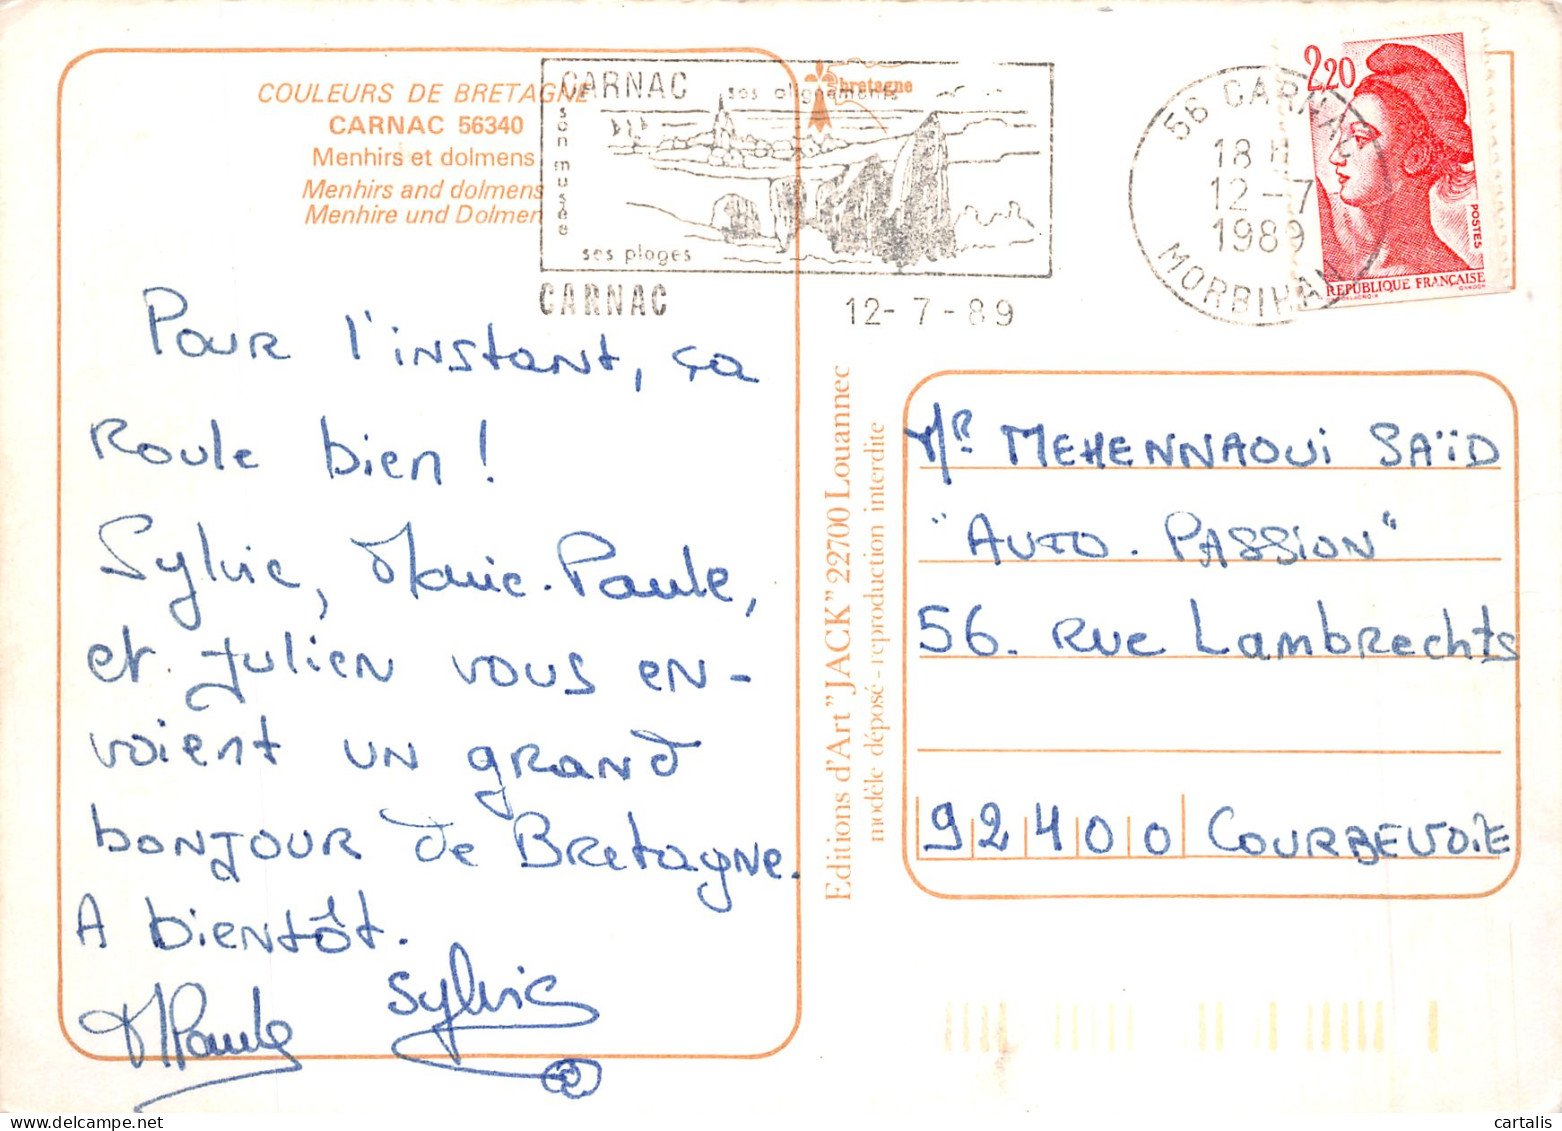 COULEURS DE BRETAGNE
CARNAC 56340
Menhirs et dolmens
Menhirs and dolmens
Menhire und Dolmen
CARNAC
ses alignements
son musée
ses plages
CARNAC
bretagne
12-7-89
56 CARNAC
18 H
12-7
1989
MORBIHAN
2,20
POSTES
REPUBLIQUE FRANÇAISE
Pour l'instant, ça
Roule bien !
Sylvie, Marie-Paule,
et Julien vous en-
voient un grand
bonjour de Bretagne.
A bientôt.
MPaule Sylvie
Editions d'Art "JACK" 22700 Louannec
modèle déposé - reproduction interdite
Mr MEHENNAOUI SAÏD
"AUTO. PASSION"
56. Rue Lambrechts
92400 COURBEVOIE
cartalis